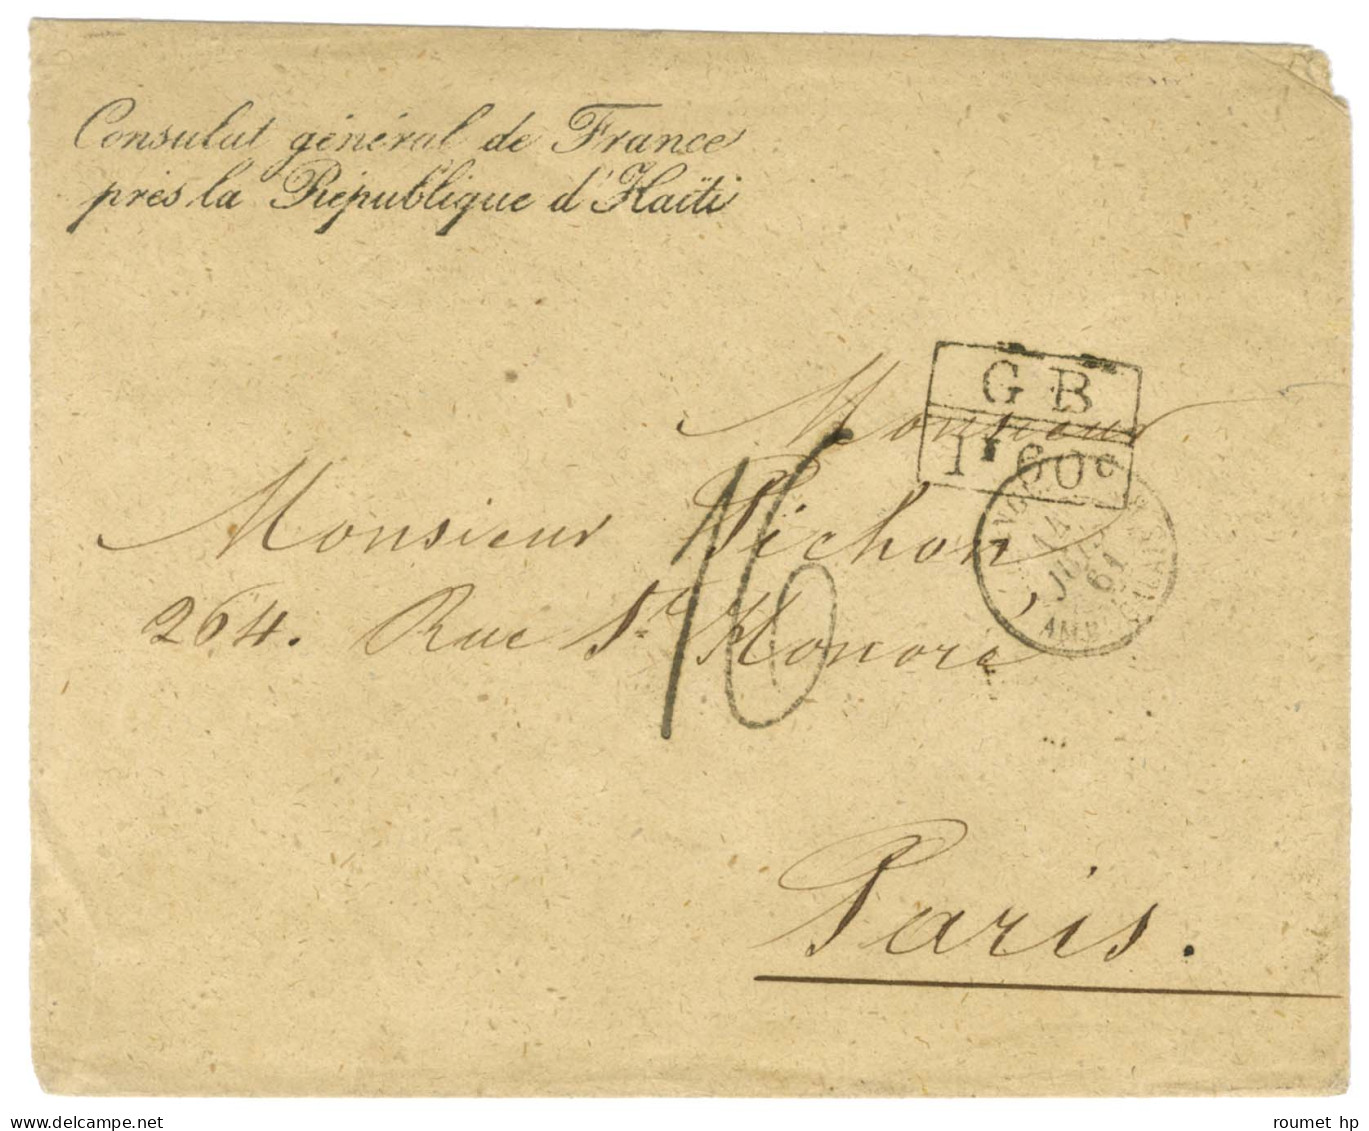 Consulat général de France
près la République d'Haïti
G B
1f 60c
Monsieur
Monsieur Pichon,
264. Rue St. Honoré
16
ANGL.
14
JUIL
61
AMB. CALAIS
Paris.
roumet hp